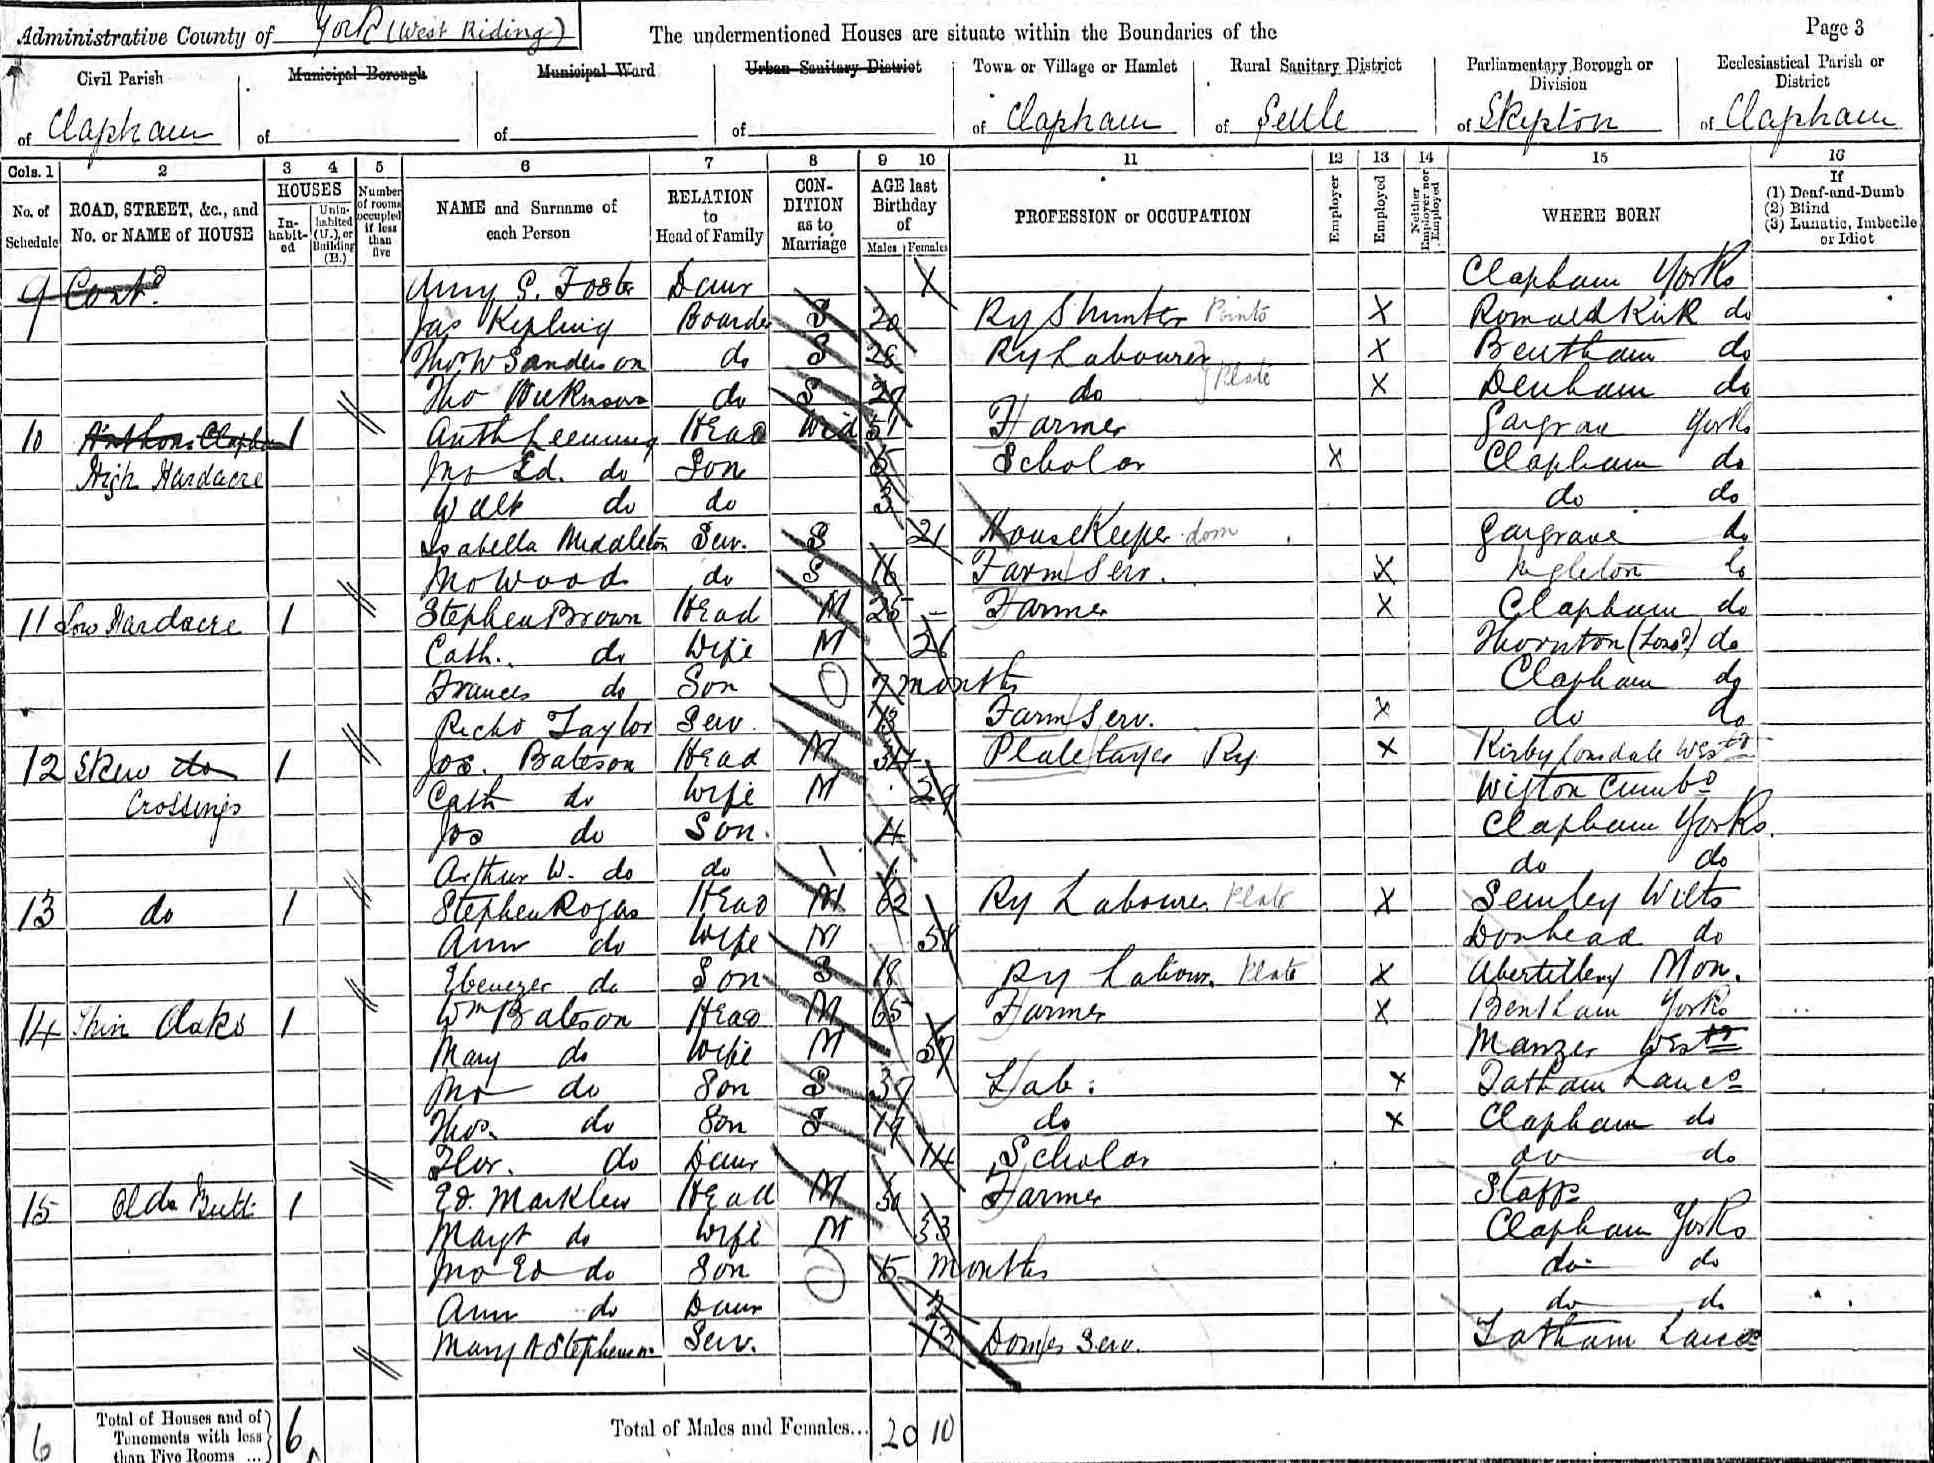 Administrative County of York (West Riding) The undermentioned Houses are situate within the Boundaries of the Page 3
Civil Parish Municipal Borough Municipal Ward Urban Sanitary District Town or Village or Hamlet Rural Sanitary District Parliamentary Borough or Division Ecclesiastical Parish or District
of Clapham of of of of Clapham of Settle of Skipton of Clapham
Cols. 1 2 3 4 5 6 7 8 9 10 11 12 13 14 15 16
No. of Schedule ROAD, STREET, &c., and No. or NAME of HOUSE HOUSES Inhabited Uninhabited (U.), or Building (B.) Number of rooms occupied if less than five NAME and Surname of each Person RELATION to Head of Family CONDITION as to Marriage AGE last Birthday of Males Females PROFESSION or OCCUPATION Employer Employed Neither Employer nor Employed WHERE BORN If (1) Deaf-and-Dumb (2) Blind (3) Lunatic, Imbecile or Idiot
9 Contd. Amy G. Foster Daur X Clapham Yorks
Jas Kipling Boarder S 20 Ry Shunter Points X Romaldkirk do
Tho W Sanderson do S 28 Ry Labourer X Bentham do
Tho do S 29 do Plate X Denham do
10 1 Anth Leeming Head Wid 51 Farmer Gargrav Yorks
High Hardacre Jno Ed. do Son 5 Scholar X Clapham do
Walt do do 3 do do
Isabella Middleton Serv. S 21 HouseKeeper dom Gargrave do
Jno Wood do S 16 Farm Serv. X Ingleton do
11 Low Hardacre 1 Stephen Brown Head M 25 Farmer X Clapham do
Cath. do Wife M 26 Thornton do
Frances do Son 7 months Clapham do
Richd Taylor Serv. 13 Farm Serv. X do do
12 Skew do 1 Jos. Bateson Head M 34 Platelayer Ry X Kirby Lonsdale Westd
Crossings Cath do Wife M 29 Wigton Cumbd
Jos do Son. 4 Clapham Yorks.
Arthur W. do do 1 do do
13 do 1 Stephen Rogers Head M 62 Ry Labourer Plate X Semley Wilts
Ann do Wife M 58 Donhead do
Ebenezer do Son S 18 Ry Labour. Plate X Abertillery Mon.
14 1 Wm Bateson Head M 65 Farmer X Bentham Yorks
Mary do Wife M 57 Westd
Jno do Son S 39 Lab: X Tatham Lancs
Thos. do Son S 19 do X Clapham do
Flor. do Daur 14 Scholar do do
15 1 Ed. Marklew Head M 30 Farmer Staffs
Margt do Wife M 33 Clapham Yorks
Jno Ed do Son 5 Months do do
Ann do Daur 2 do do
Mary A Stephenson Serv. 13 Domes Serv. Tatham Lancs
6 Total of Houses and of Tenements with less than Five Rooms ... 6 Total of Males and Females... 20 10